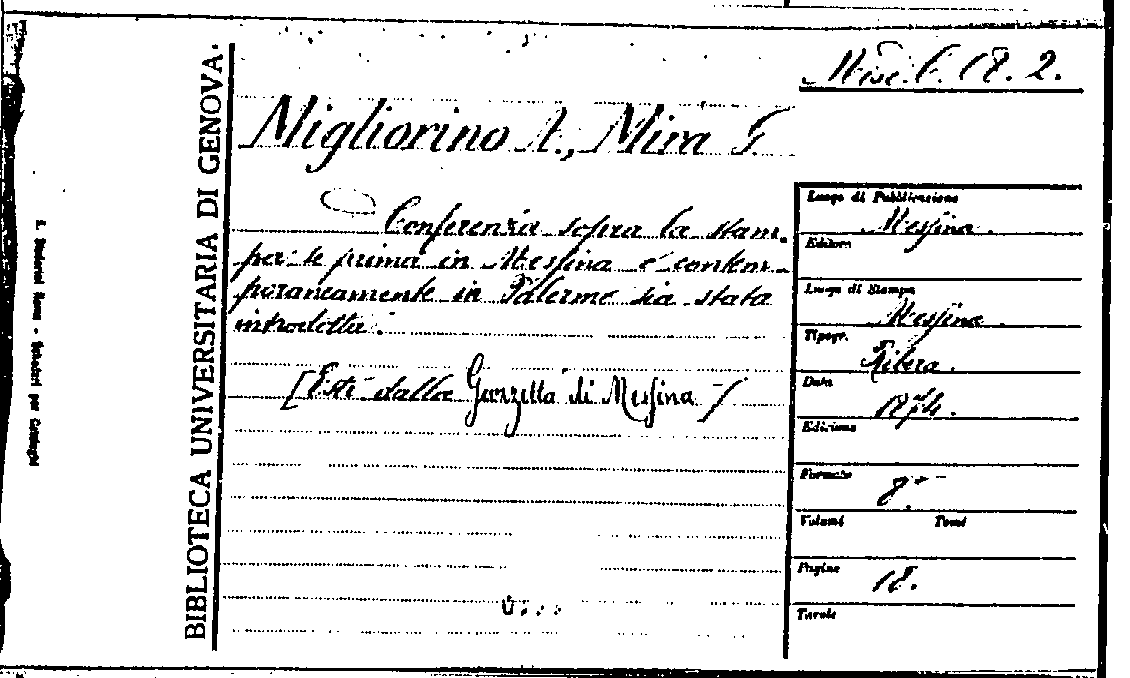 Misc. C. 18. 2.
Migliorino A., Mira G.
Conferenza sopra la stam-
pa: se prima in Messina o contem-
poraneamente in Palermo sia stata
introdotta.
[Estr. dalla Gazzetta di Messina]
BIBLIOTECA UNIVERSITARIA DI GENOVA.
Luogo di Pubblicazione
Messina.
Editore
Luogo di Stampa
Messina.
Tipogr.
Ribera.
Data
1874.
Edizione
Formato
8°
Volumi Tomi
Pagine
18.
Tavole
Roma - Schedari per Cataloghi